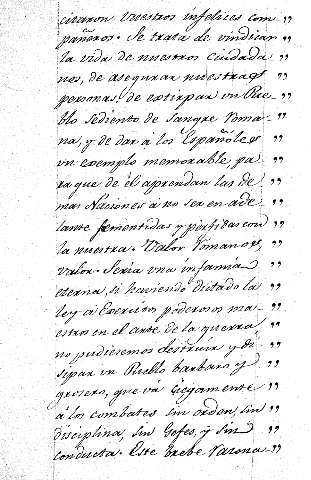 citaron nuestros infelices com "
pañeros. Se trata de vindicar "
la vida de nuestros ciudada "
nos, de asegurar nuestras "
personas, de extirpar un Pue- "
blo sediento de sangre Roma- "
na, y de dar a los Españoles "
un exemplo memorable, pa "
ra que de él aprendan las de "
mas Naciones a no ser en ade "
lante fementidas y pérfidas con "
la nuestra. Valor Romanos, "
valor. Seria una infamia "
eterna, si haviendo dictado la "
ley a Exercitos poderosos ma- "
estros en el arte de la guerra, "
no pudiesemos destruir y di "
sipar un Pueblo barbaro y "
grosero, que vá ciegamente "
á los combates sin orden, sin "
disciplina, sin Gefes, y sin "
conducta. Este breve razona- "